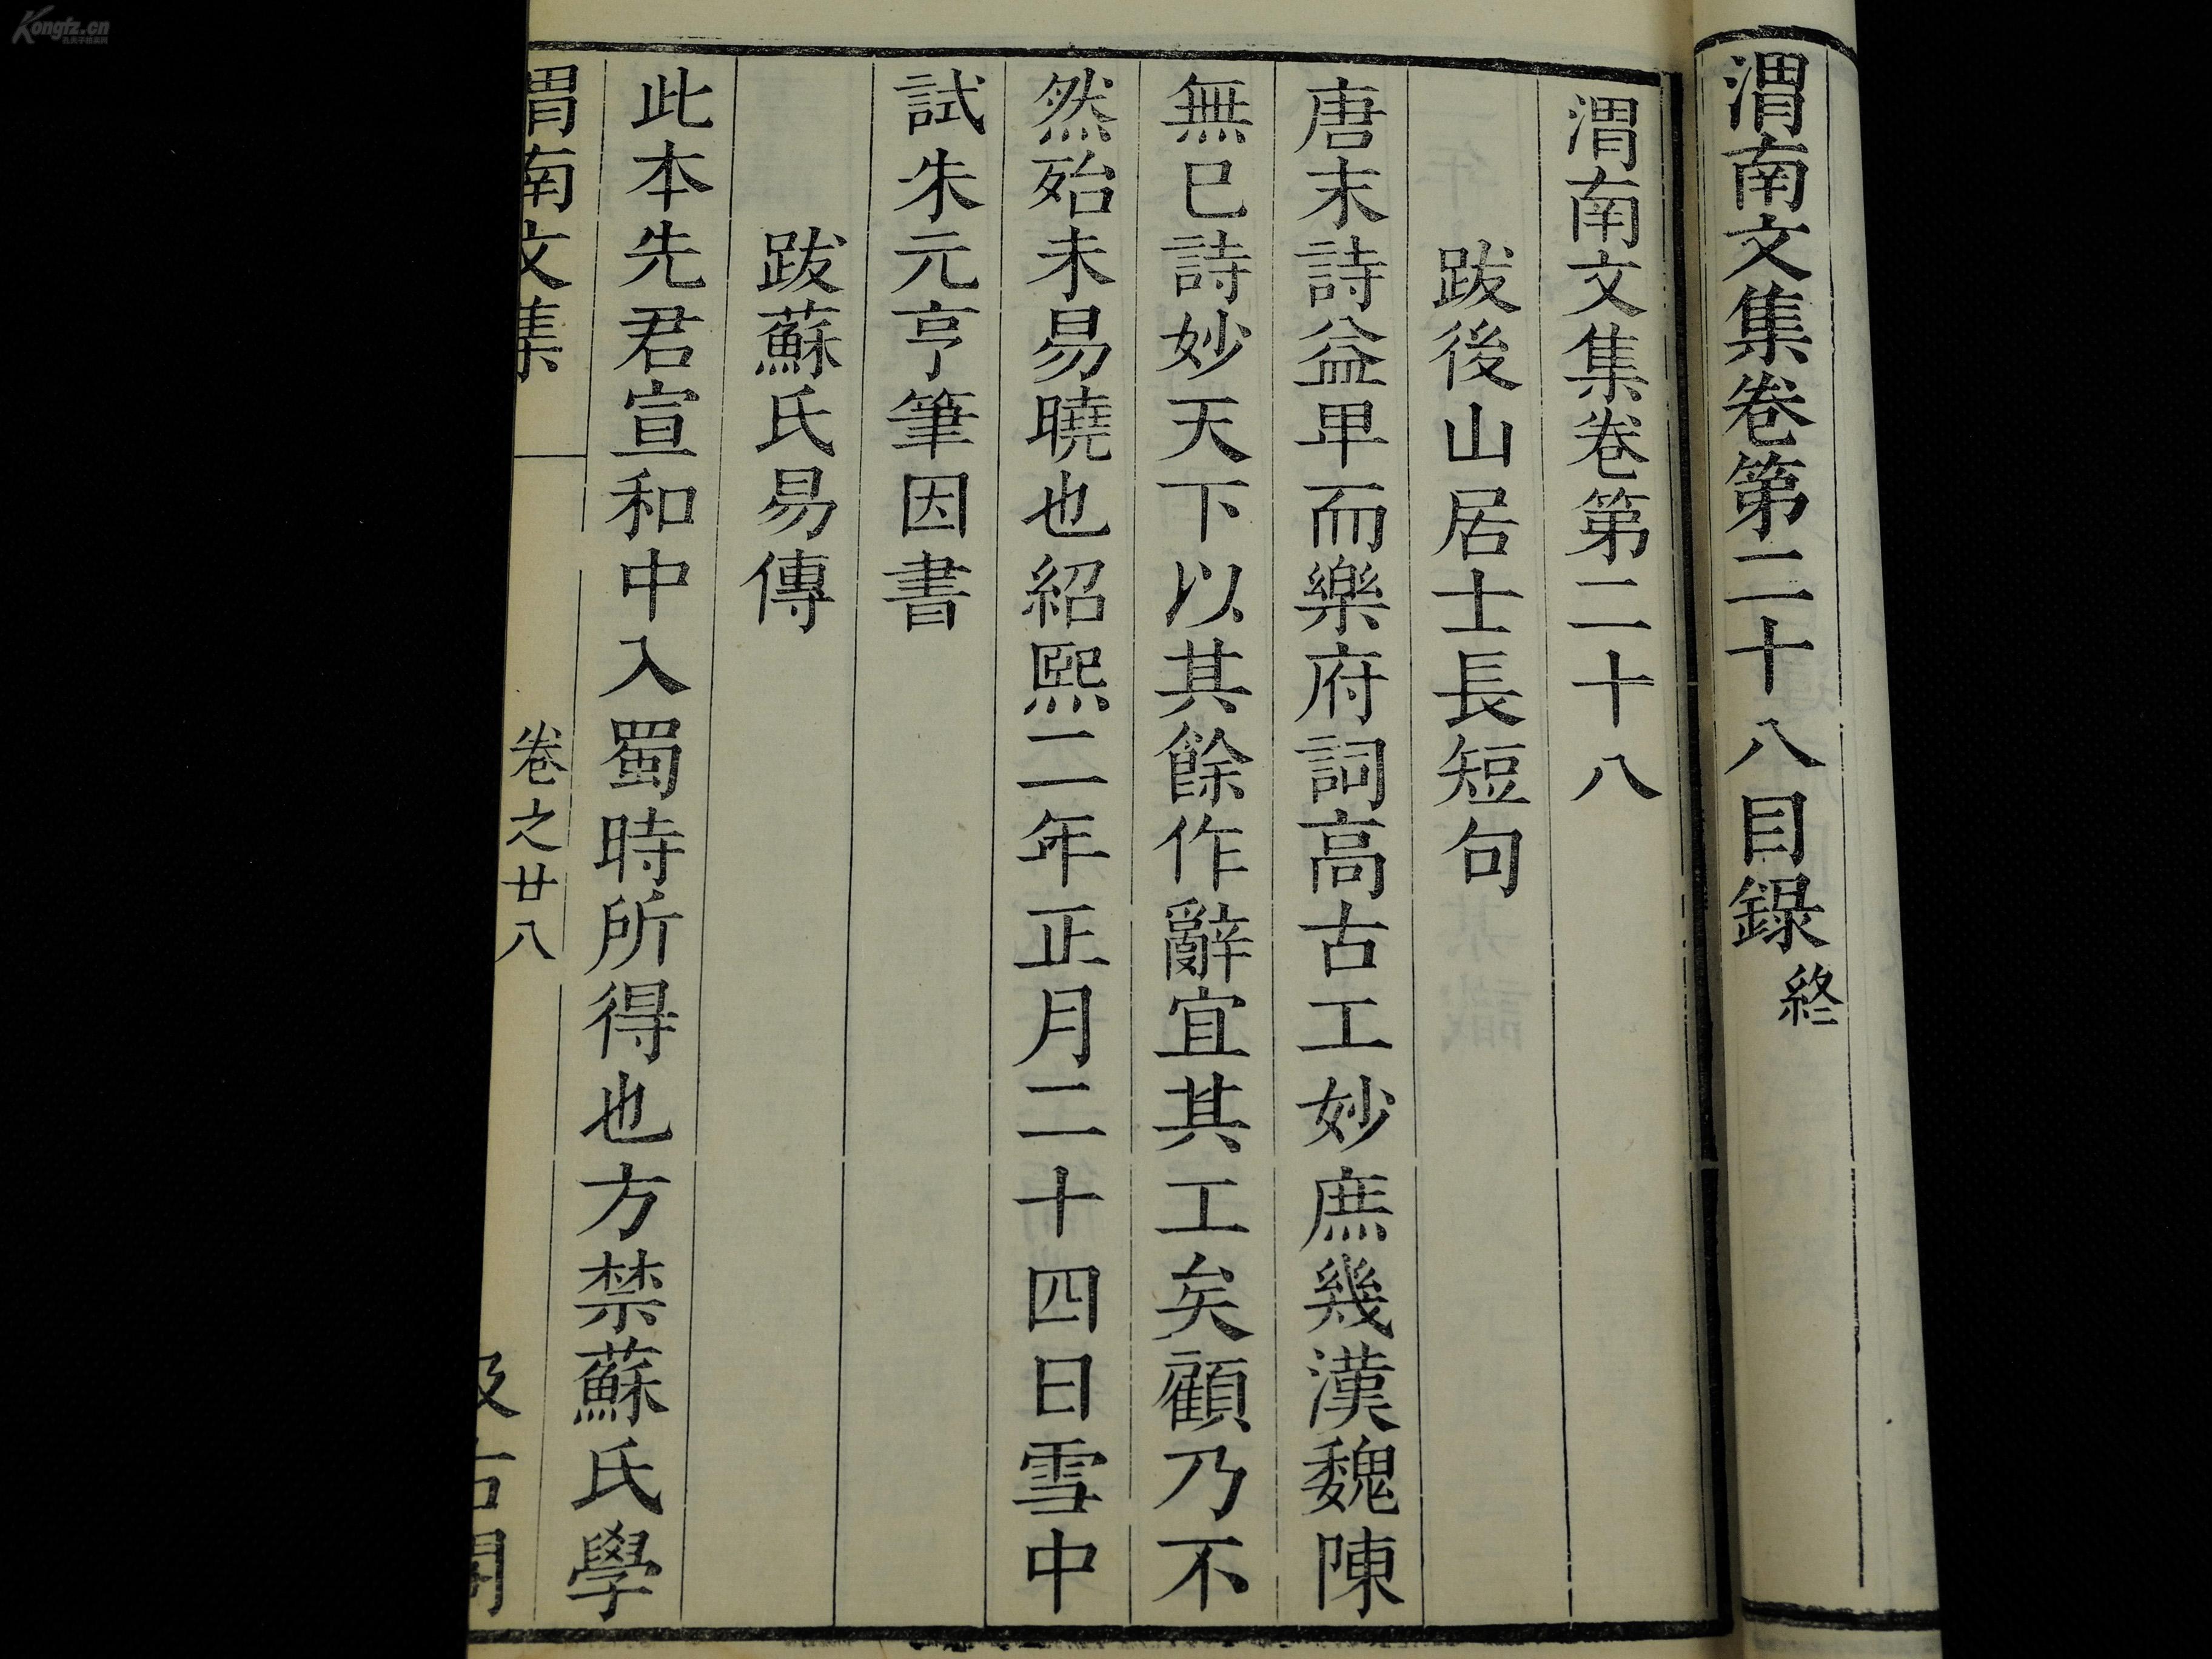 渭南文集卷第二十八目錄終
渭南文集卷第二十八
跋後山居士長短句
唐末詩益卑而樂府詞高古工妙庶幾漢魏陳
無已詩妙天下以其餘作辭宜其工矣顧乃不
然殆未易曉也紹熙二年正月二十四日雪中
試朱元亨筆因書
跋蘇氏易傳
此本先君宣和中入蜀時所得也方禁蘇氏學
渭南文集
卷之廿八
汲古閣
Kongfz.cn